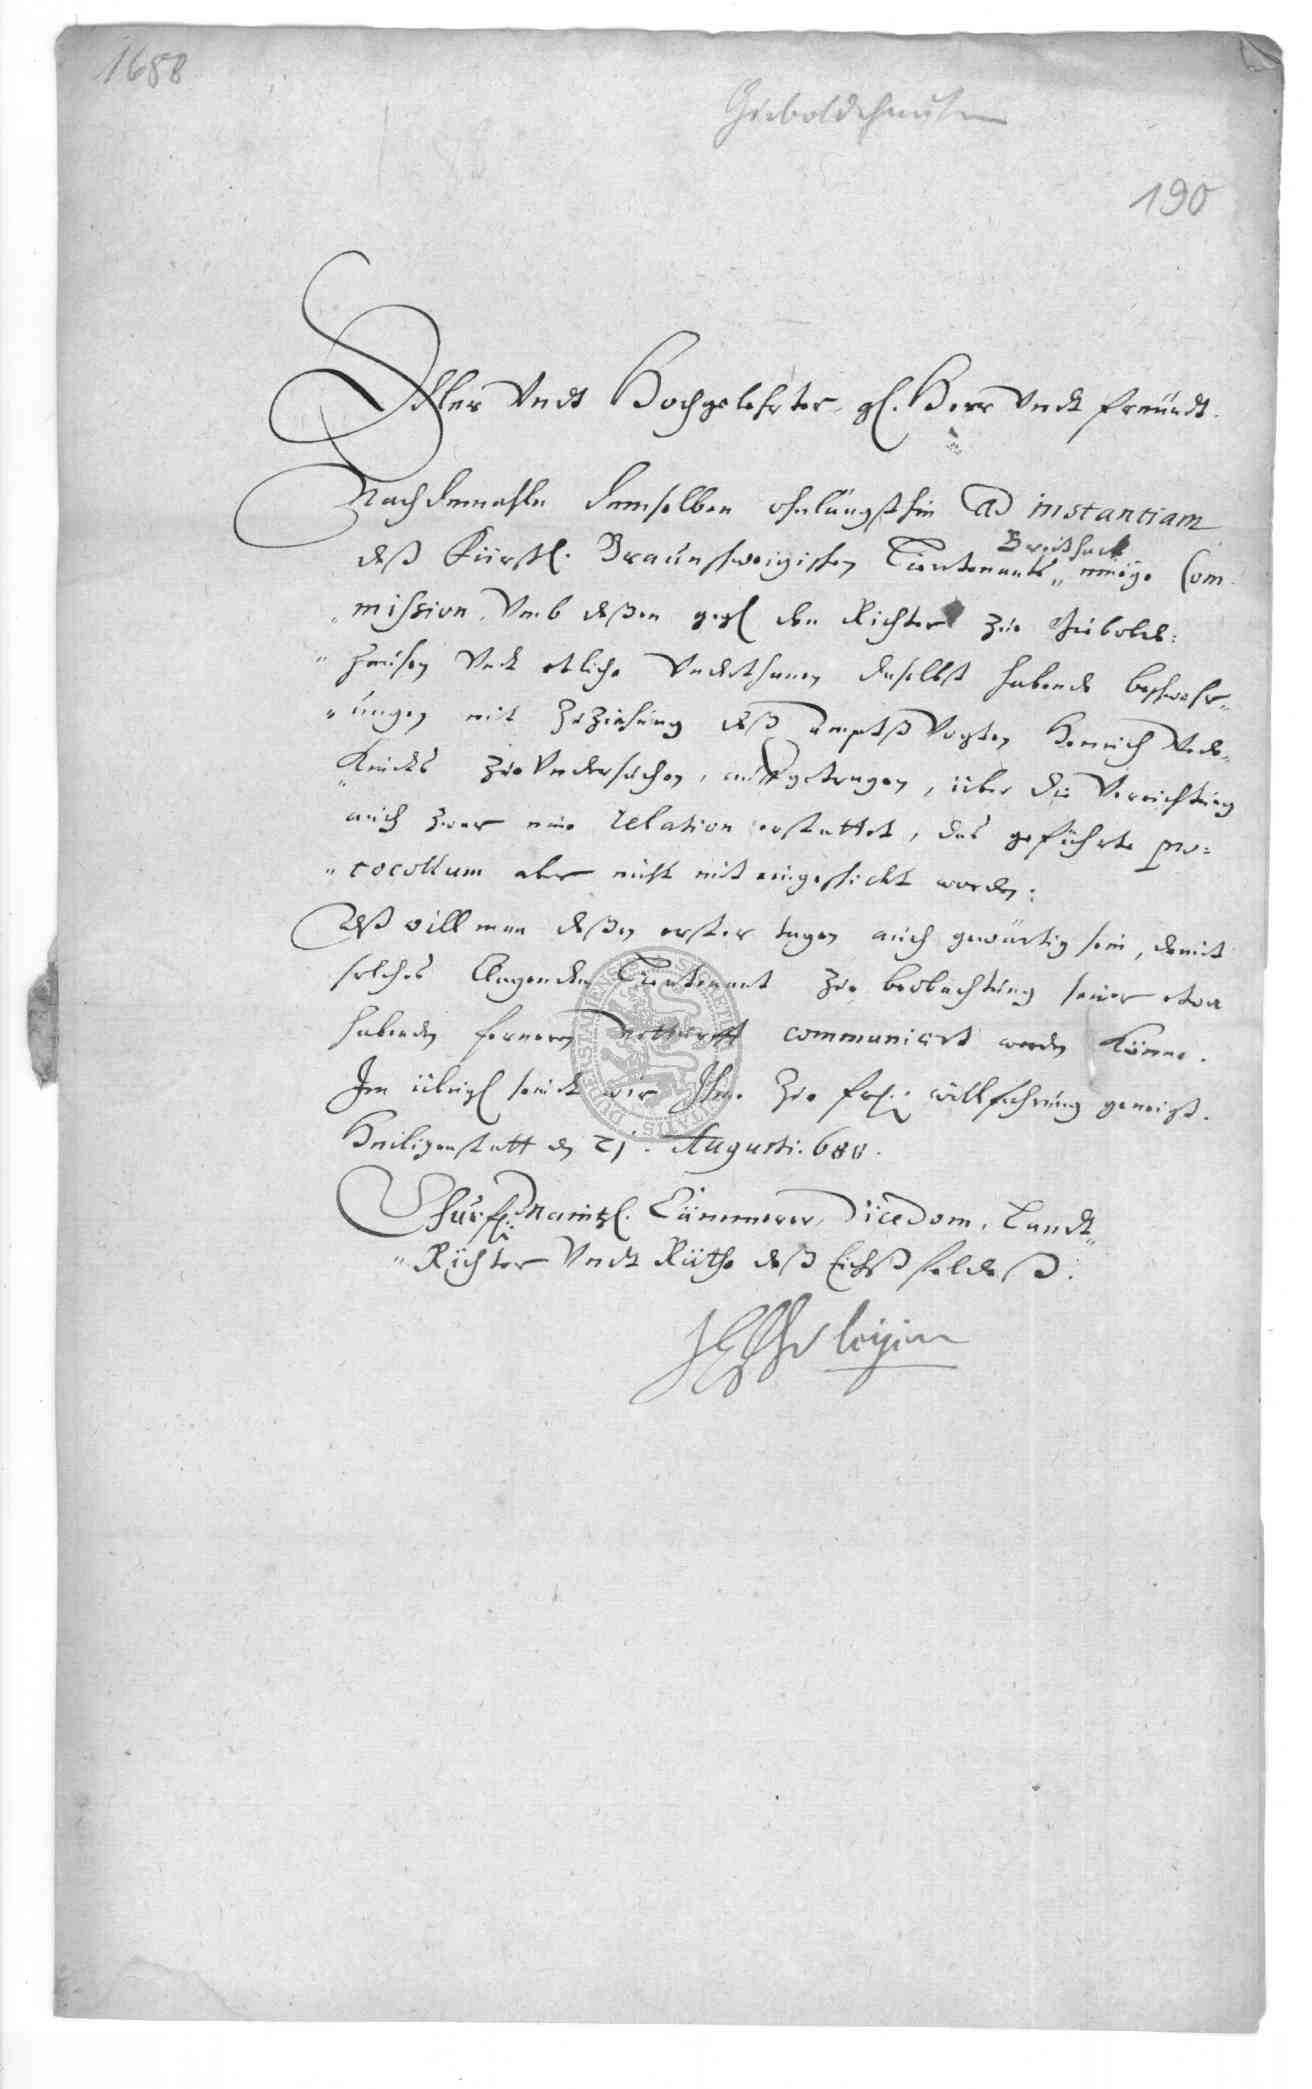 1688
Gieboldehausen
190
Edler Undt Hochgelehrter, gl. Herr Undt freündt.
Nachdemahln demselben ohnlängsthin ad instantiam
deß Fürstl. Braunschweigischen Lieutenants Breithack einige Com
mission, Umb deßen gegl den Richter zue Gibolds:
hausen Undt etliche Underthanen daselbst habende beschwehr
ungen mit Zuziehung deß ampts Vogten Henrich
Zue Undersuchen, auffgetragen, über die Verrichtung
auch zwar eine relation erstattet, das geführte pro:
tocollum aber nicht mit eingeschickt worden:
Alß will man deßen erster tagen auch gewärtig sein, damit
solches Clagenden Lieutenant Zue beobachtung seiner etwa
habenden fernern notturfft communicirt werden könne.
Im übrigl seindt wir Ihme Zue frl. willfahrung geneigt.
Heiligenstatt d 21. Augusti. 688.
Churfl. Maintzl. Cämmerer, Vicedom, Landt
Richter Undt Räthe deß Eichßfeldeß.